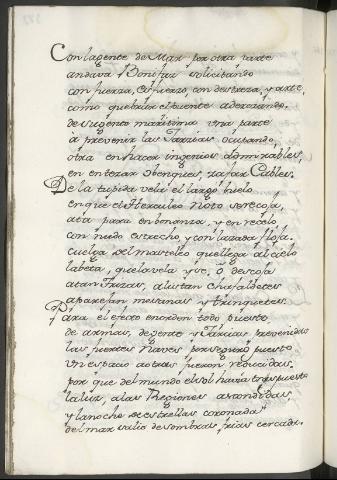 Con la gente de Mar por otra parte
andava Bonifaz solicitando
con fuerza, esfuerzo, con destreza, y arte,
como quebrar el puente aderezando.
de su gente maritima una parte
à prevenir las Tarcias ocupando,
otra en hacer ingenios admirables,
en enterar obenques, rajar Cables.
De la tupida vela el largo buelo
en que el Herculeo Noto se recoja,
ata para en bonanza, y en recelo
con nudo estrecho, y con lazada floja.
cuelga del masteleo que llega al cielo
la beta, que la vela yze, ò descoja
atan Trizas, alistan Chafaldetes
aparejan mesanas y trinquetes.
Para el efeto en orden todo puesto
de armas, de gente y Tarcias prevenidas
las fuertes Naves por seguro puesto
un espacio atras fueron reducidas,
por que del mundo el sol havia traspuesto
la luz, a las Regiones ascondidas,
y la noche de estrellas coronada
del mar salio de sombras, frias cercada.